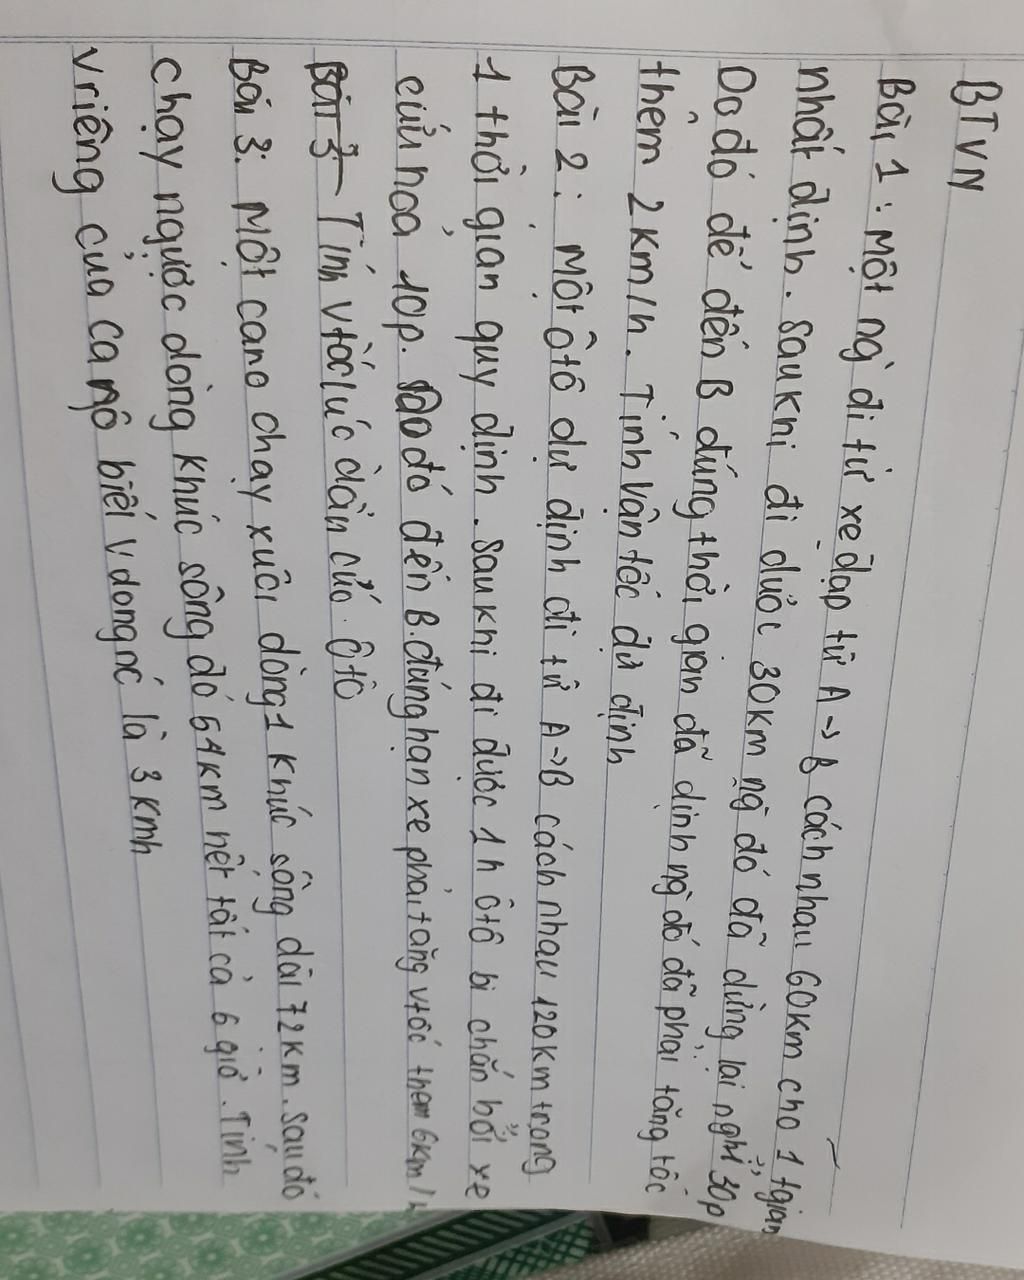 BTVN
Bài 1: Một ng` đi từ xe đạp từ A → B cách nhau 60km cho 1 tgian
nhất định. Sau khi đi được 30km ng` đó đã dừng lại nghỉ 30p
Do đó để đến B đúng thời gian đã định ng` đó đã phải tăng tốc
thêm 2km/h. Tính vận tốc dự định
Bài 2: Một ôtô dự định đi từ A → B cách nhau 120km trong
1 thời gian quy định. Sau khi đi được 1h ôtô bị chắn bởi xe
cứu hỏa 10p. Do đó đến B đúng hạn xe phải tăng vtốc thêm 6km/h
Bài 3 Tính vtốc lúc đầu của ôtô
Bài 3: Một cano chạy xuôi dòng 1 khúc sông dài 72km. Sau đó
chạy ngược dòng khúc sông đó 54km hết tất cả 6 giờ. Tính
v riêng của ca nô biết v dòng nc' là 3kmh